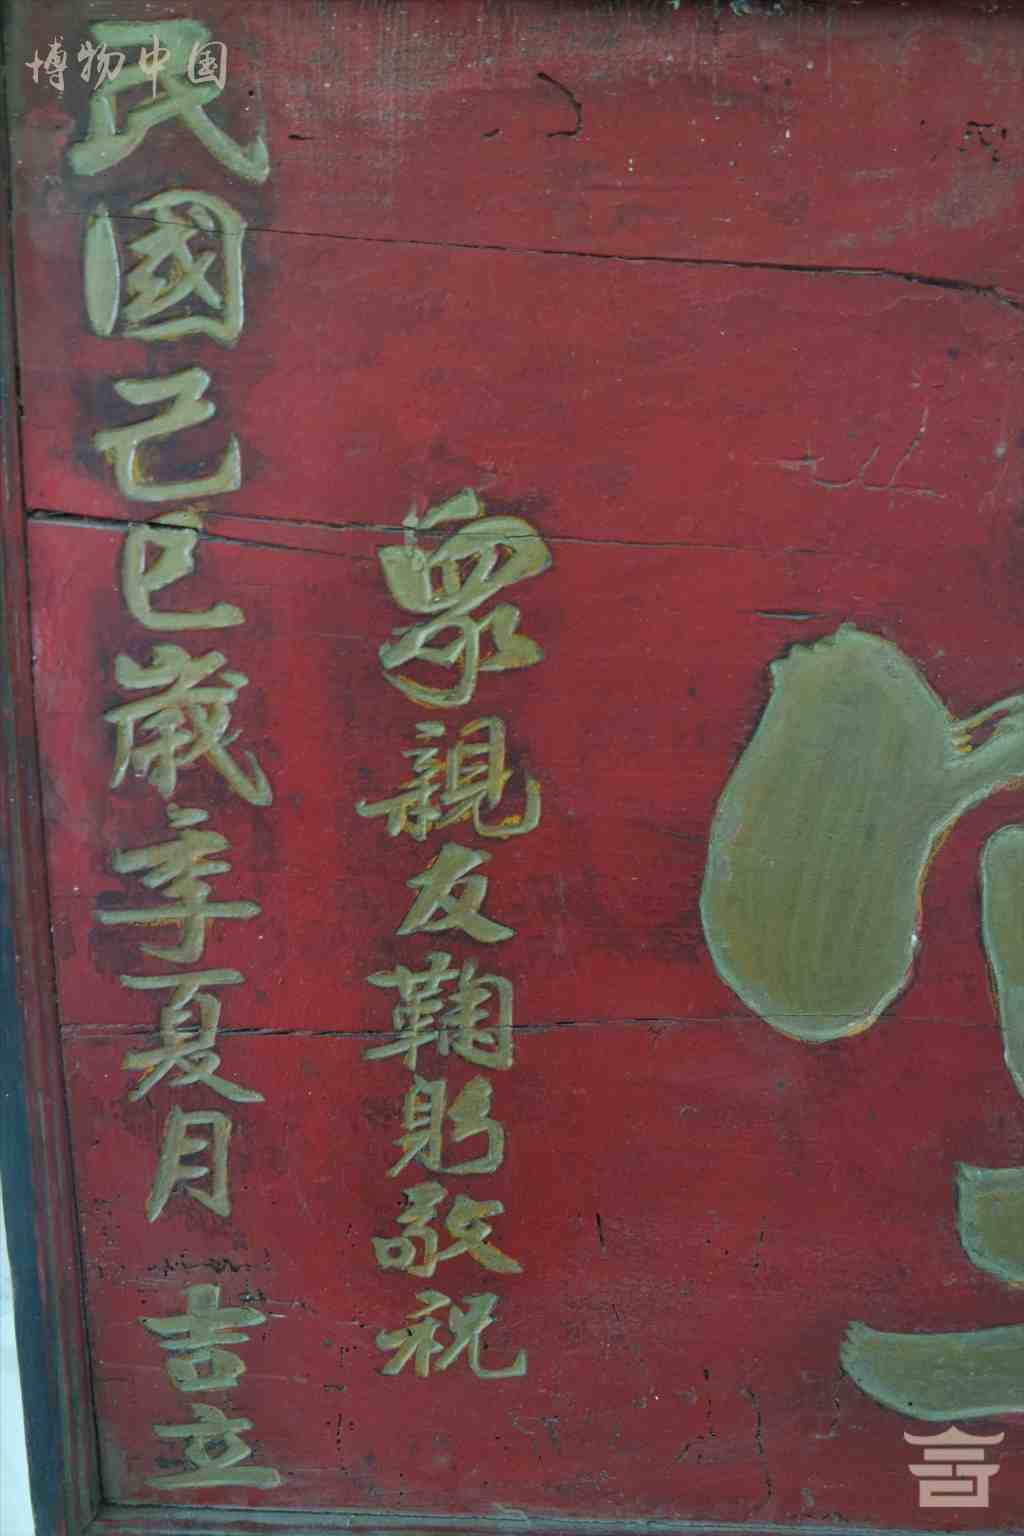 博物中国
眾親友鞠躬敬祝
民國己巳歲季夏月 吉立